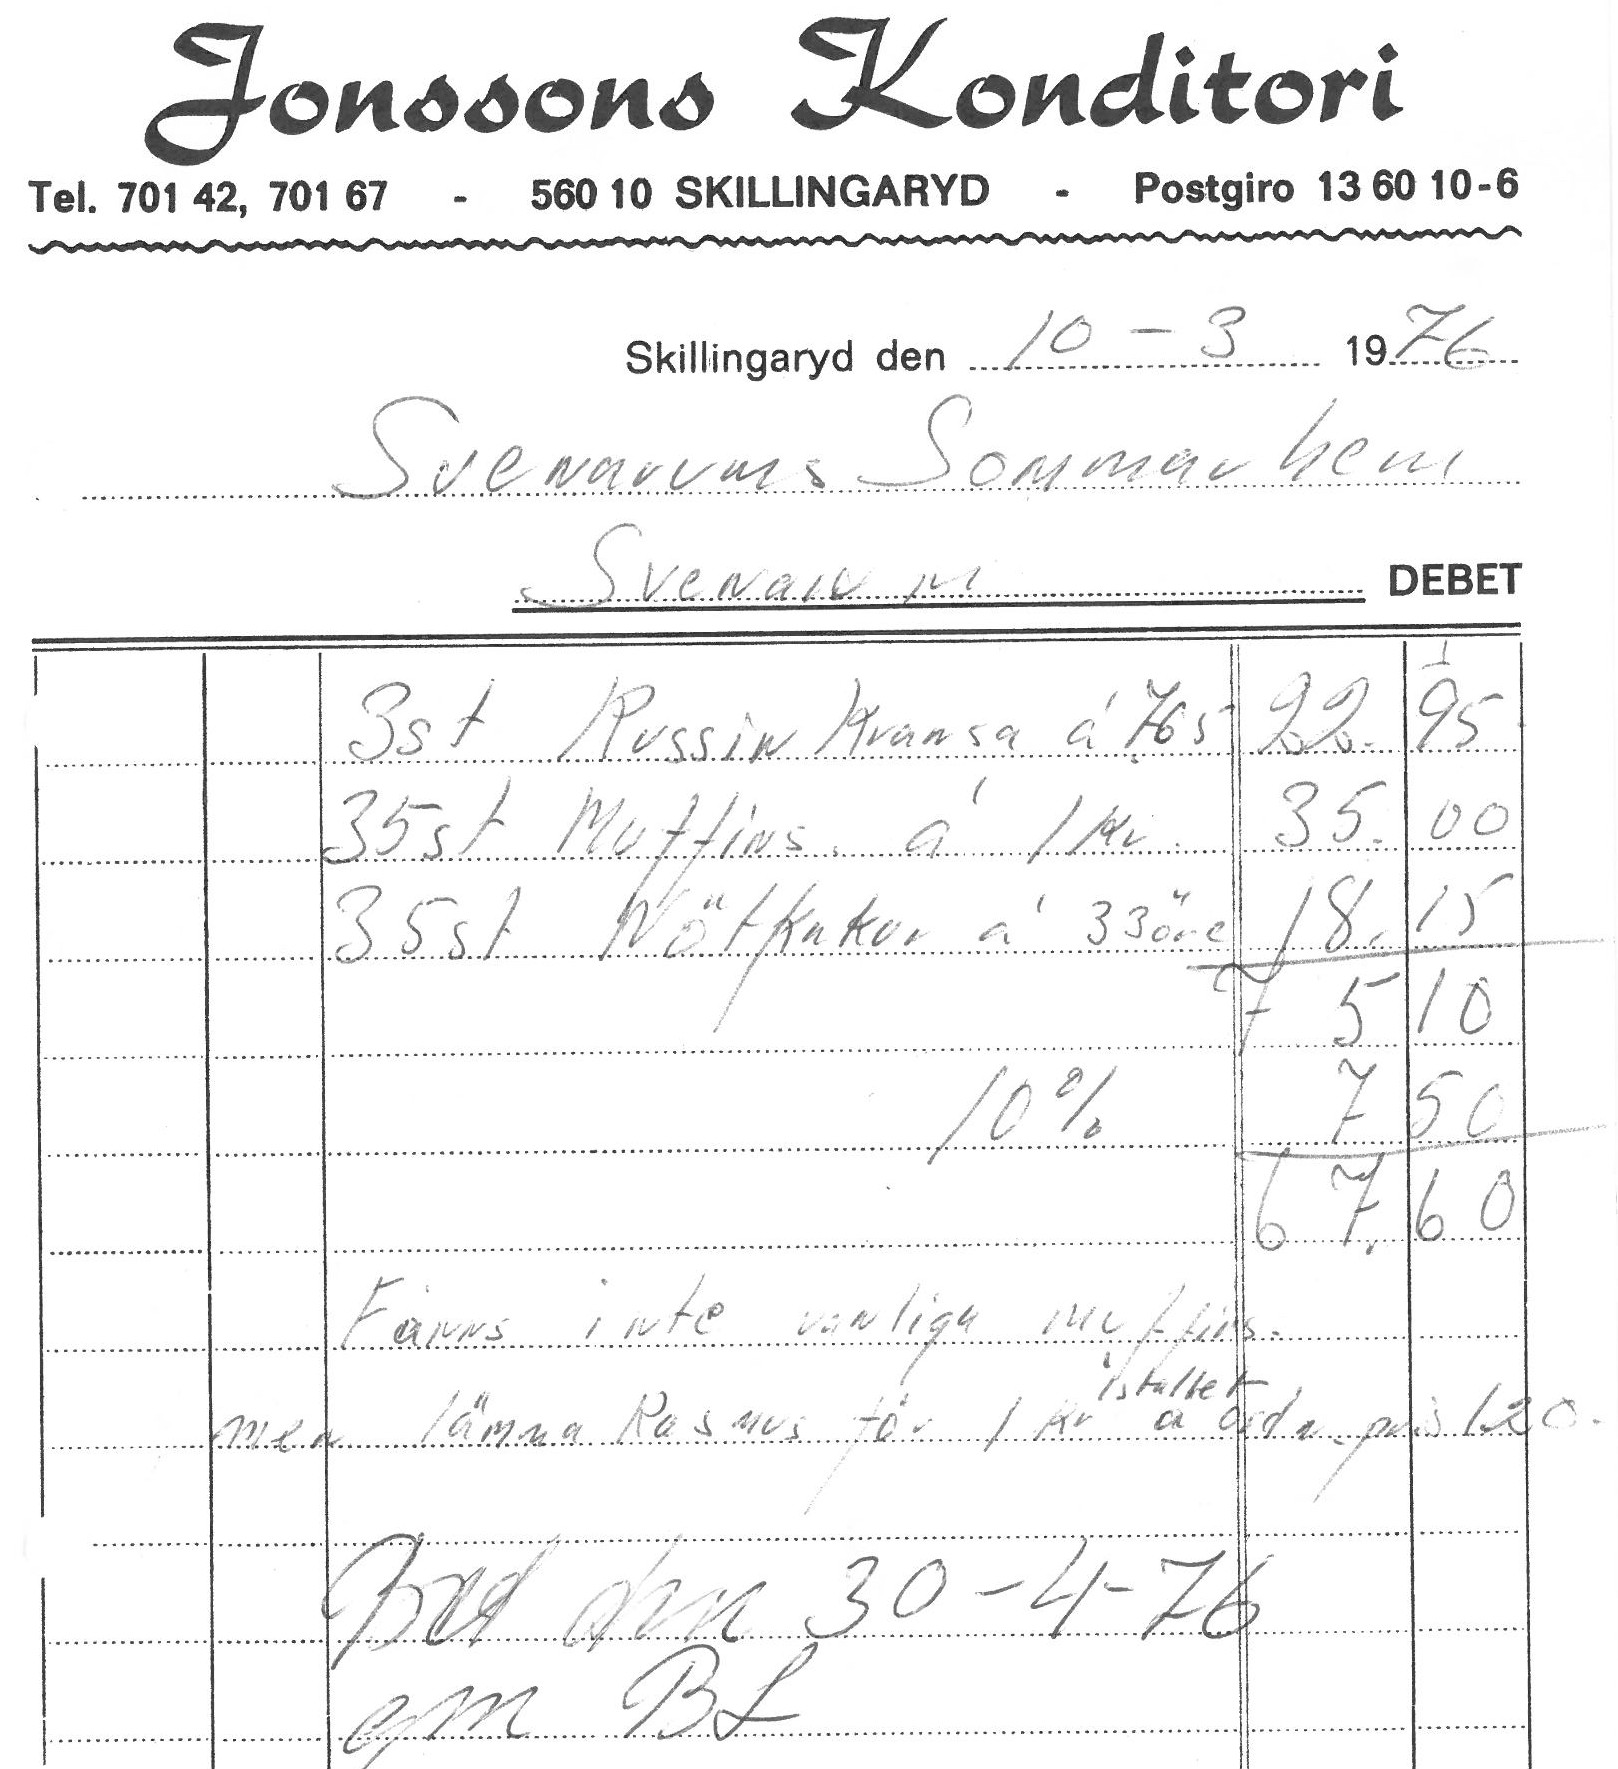 Jonssons Konditori
Tel. 701 42, 701 67 - 560 10 SKILLINGARYD - Postgiro 13 60 10-6
Skillingaryd den 10-3 1976
Svenarums Sommarhem
Svenarum DEBET
3st Russin Kransa á 765 22.95
35st Muffins. á 1 Kr. 35.00
35st Nötkakor á 33öre 18.15
75 10
10% 7 50
67.60
Fanns inte vanliga muffins.
istället
men lämna Rasmus för 1 Kr a ordn. pris 120.
Bet den 30-4-76
gm BL